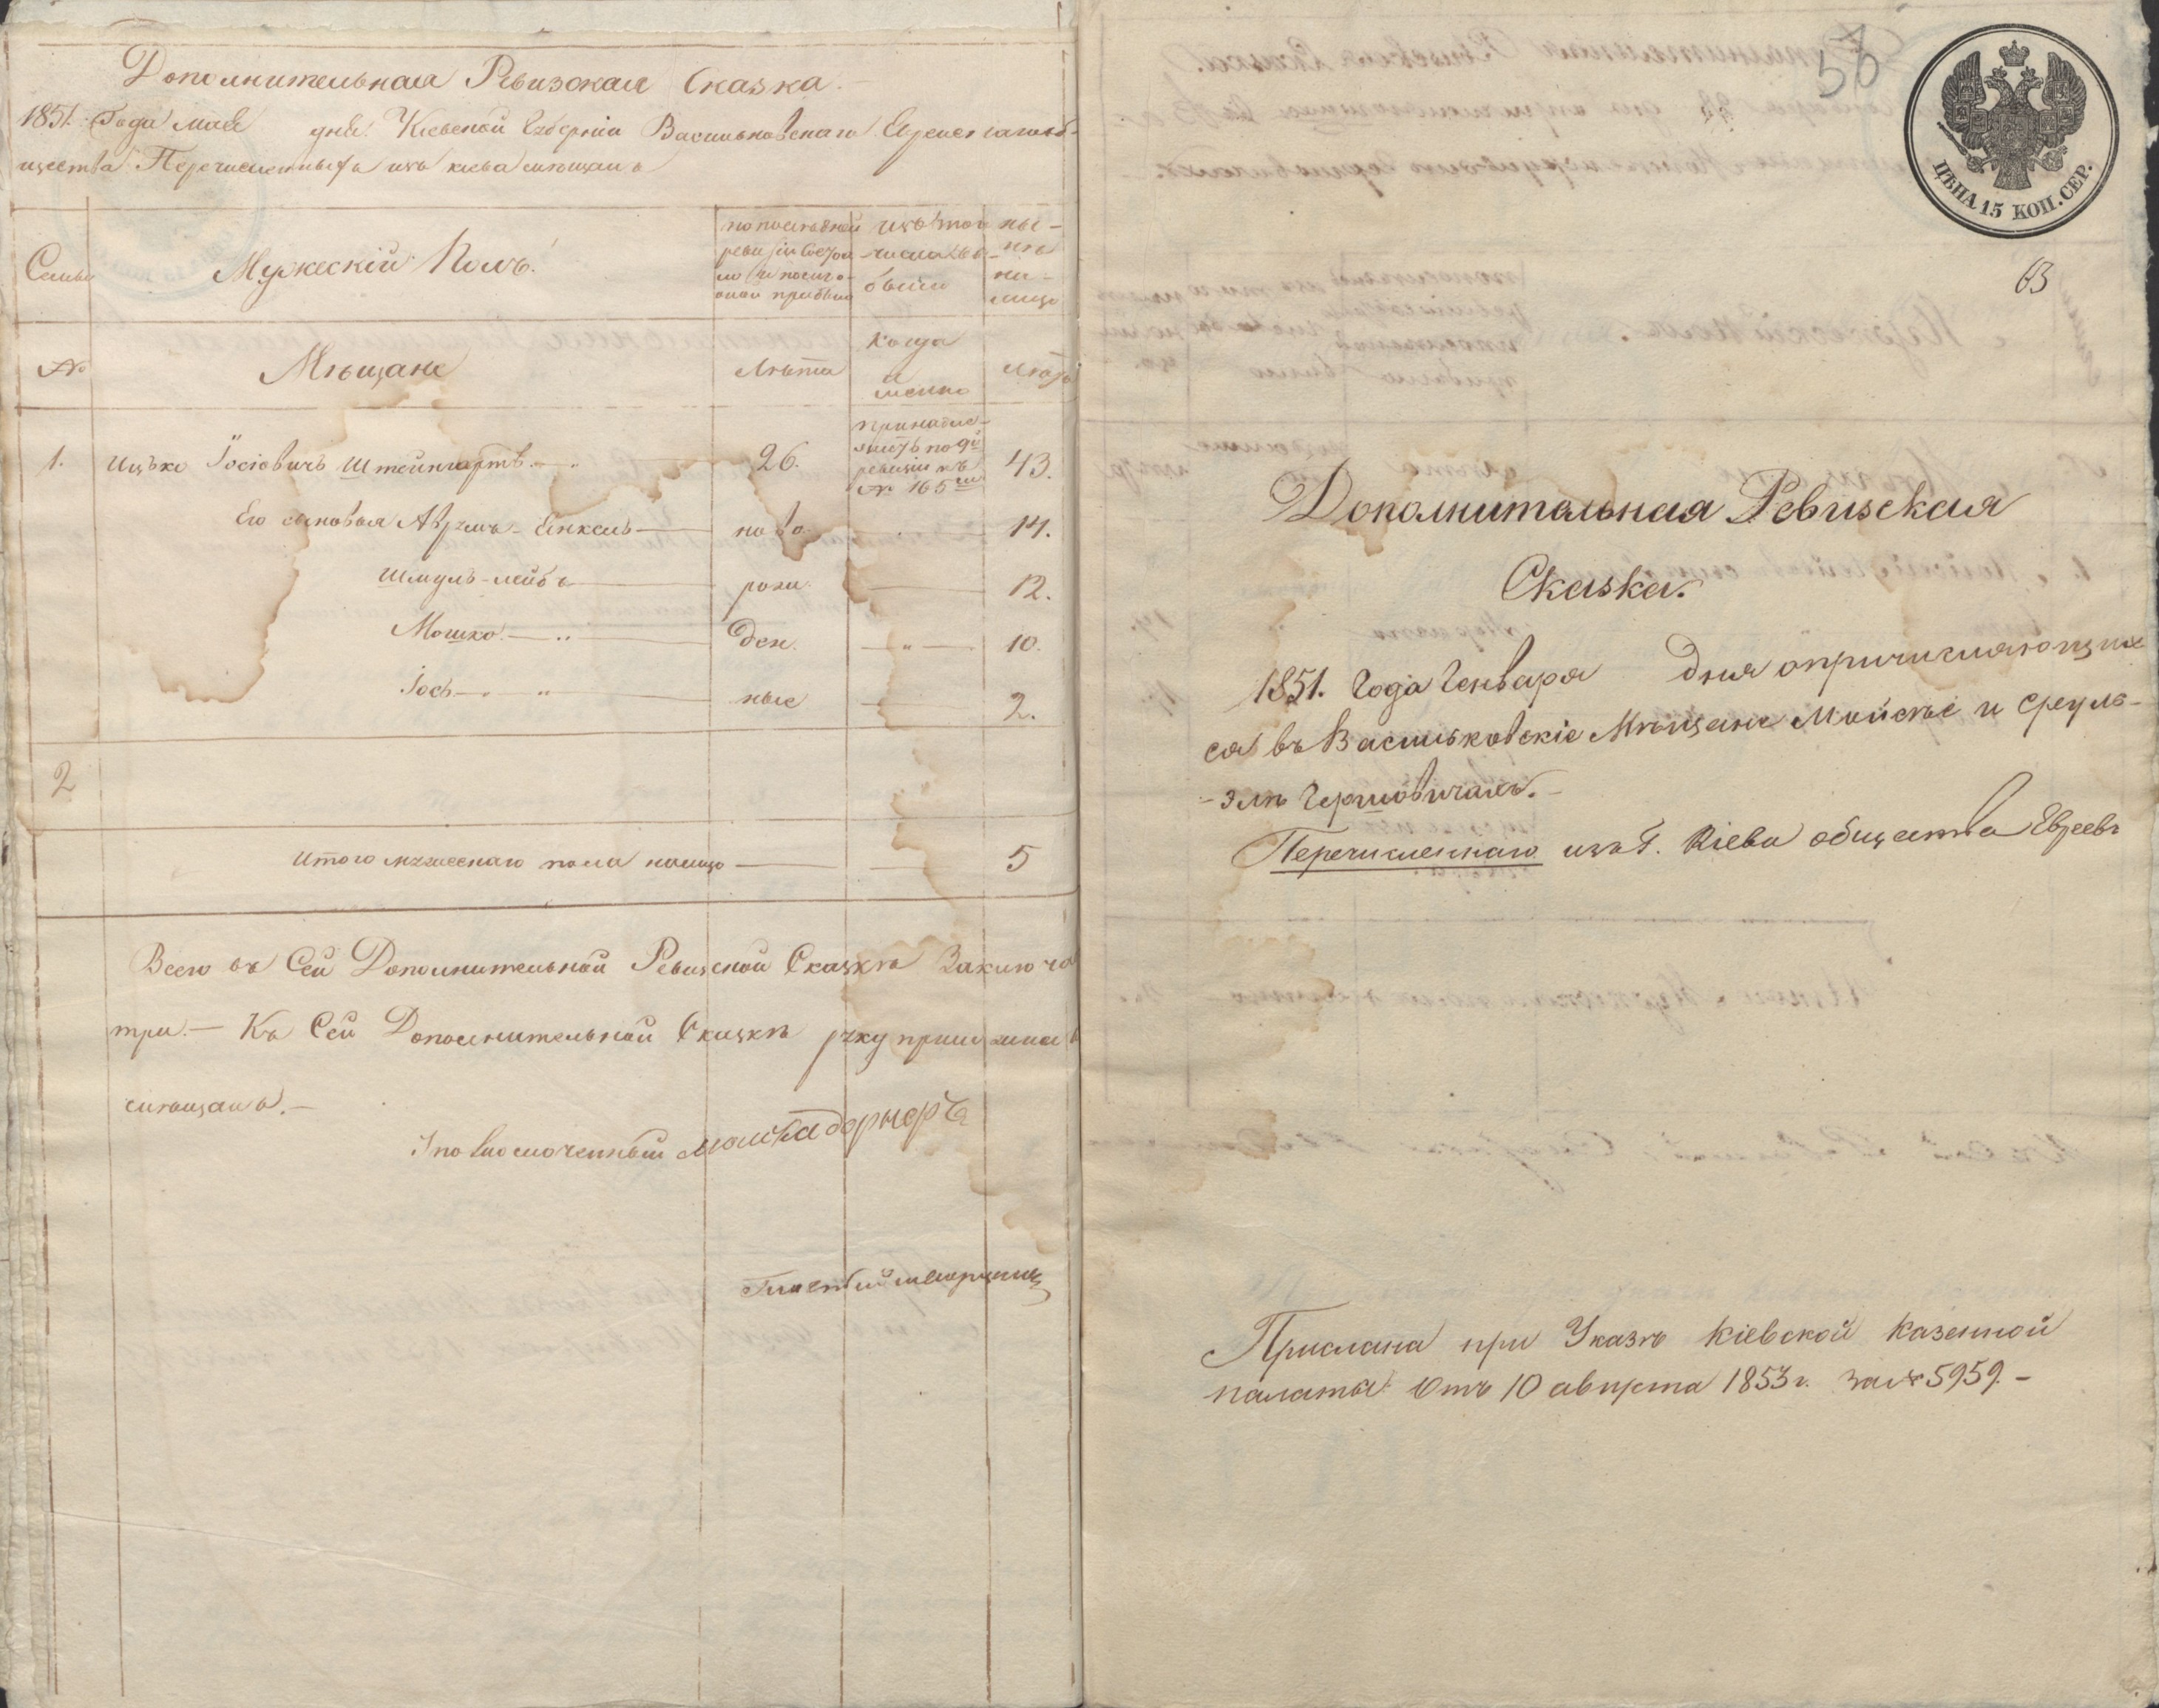 Дополнительная Ревизская Сказка.
1851. Года Мая дня. Кіевской Губерніи Васильковскаго Еврейскаго об-
щества Перечисленныхъ изъ кіева мещанъ
Семьи
Мужескій Полъ.
по последней
ревизіи состоя
ло и после о
ной прибыло
изъ того
числа вы-
было
ны-
не
на-
лицо
№
Мѣщане
Лѣта
когда
и
менно
Лѣта
1.
Ицько Іосіовичъ Штейнгартъ.
26.
по 9й
ревизіи къ
№ 165
43.
Его сыновья Аврумъ-Енкель
ново
14.
Шмуль-лейбъ
рож
12.
Мошко.
ден.
10.
Іось
ные
2.
2
Итого мужескаго пола налицо
5
Всего въ Сей Дополнительной Ревизской Сказкѣ Заключа
три. — Къ Сей Дополнительной Сказкѣ руку
мещанъ. —
Уполномоченный
57
ЦѢНА 15 КОП. СЕР.
63
Дополнительная Ревизская
Сказка.
1851. Года Генваря дня о причисляющих
ся въ Васильковскіе Мѣщане Мойсѣе и Сруль-
-элѣ Гершовичахъ. —
Перечисленнаго изъ Г. Кіева общества Евреевъ
Прислана при Указѣ Кіевской Казенной
палаты отъ 10 августа 1853 г. за № 5959. —